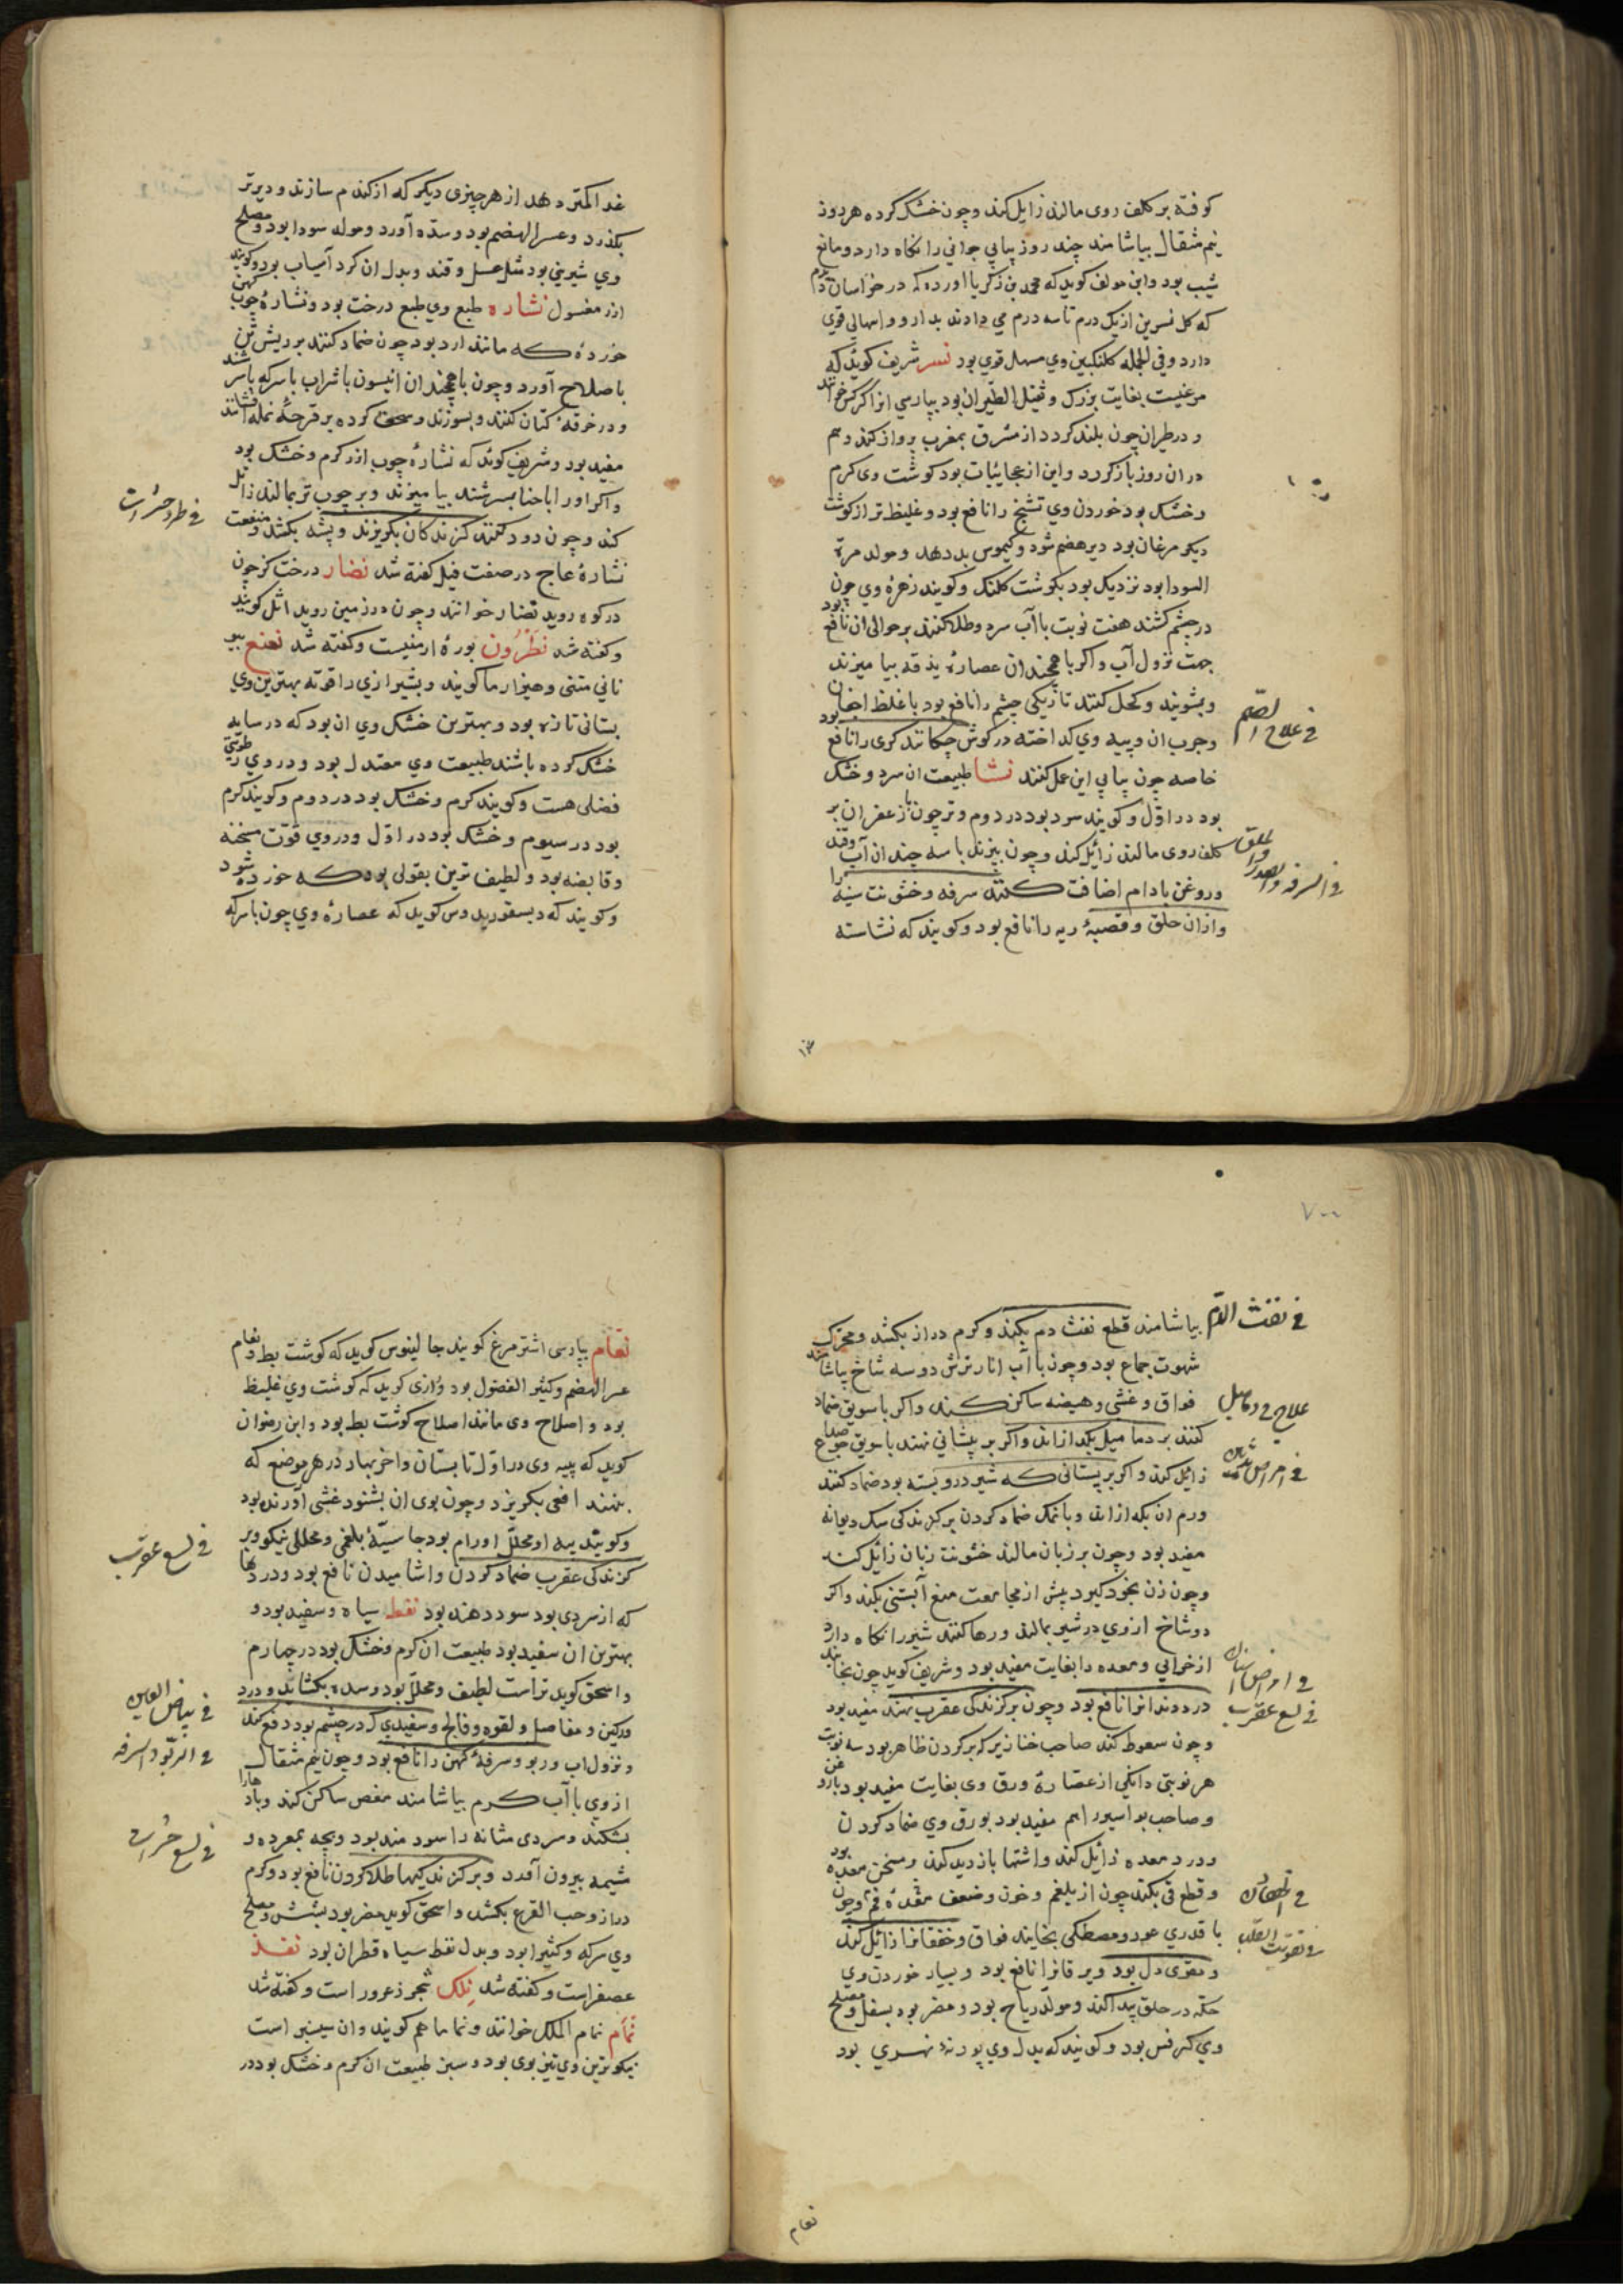 کوفته بر کلف روی مالند زایل کند و چون خشک کرده هر روز
نیم مثقال بیاشامند چند روز پیاپی جوانی را نکاه دارد و مانع
شیب بود و این مولف کوید که محمد بن زکریا آورده که در خراسان
که کل نسرین از یک درم تا سه درم می دادند بدارو و اسهالی قوی
دارد و فی الجمله کلنکبین وی مسهل قوی بود نسر شریف کوید که
مرغیست بغایت بزرک و ثقیل الطیران بود بپارسی انرا کرکس خوانند
و در طیران چون بلند کردد از مشرق بمغرب پرواز کند و هم
در ان روز باز کردد و این از عجائبات بود کوشت وی کرم
و خشک بود خوردن وی تشنج را نافع بود و غلیظ تر از کوشت
دیکر مرغان بود دیر هضم شود و کیموس بد دهد و مولد مرة
السودا بود نزدیک بود بکوشت کلنک و کویند زهرۀ وی چون
در چشم کشند هفت نوبت با آب سرد و طلا کنند بر حوالی ان نافع بود
جهت نزول آب و اکر با همچندان عصارۀ بیامیزند
و بشویند و کحل کنند تاریکی چشم را نافع بود با غلظ اجفان
و جرب ان و پیه وی کداخته در کوش چکانند کری را نافع بود
خاصه چون پیاپی این عمل کنند نشا طبیعت ان سرد و خشک
بود در اول و کویند سرد بود در دوم و تر چون با زعفران بر
کلف روی مالند زائل کند و چون بپزند با سه چندان آب وقند
و روغن بادام اضافت کنند سرفه و خشونت سینه را
و ازان حلق و قصبۀ ریه را نافع بود و کویند که نشاسته
فی علاج الصمم
فی السرفه والصدر والحلق
غذا
غذا کمتر دهد از هر چیزی دیکر که از کندم سازند و دیرتر
بکذرد و عسر الهضم بود و سده آورد و مولد سودا بود و مصلح
وی شیرینی بود مثل عسل و قند و بدل ان کرد آسیاب بود و کویند
ارز مغسول نشاره طبع وی طبع درخت بود و نشارۀ چوب کهن
خورده که مانند ارد بود چون ضماد کنند بر ریش تن
باصلاح آورد و چون با همچندان انیسون با شراب یا سرکه بسرشند
و در خرقۀ کتان کنند و بسوزند و سحق کرده بر قرحۀ نمله افشانند
مفید بود و شریف کوید که نشارۀ چوب ازر کرم و خشک بود
و اکر او را با حنا بسرشند بیامیزند و بر چوب تر بمالند زائل
کند و چون دود کنند کزندکان بکریزند و پشه بکشد و منفعت
نشارۀ عاج در صفت فیل کفته شد نضار درخت کز چون
در کوه روید نضار خوانند و چون در زمین روید اثل کویند
و کفته شد نطرون بورۀ ارمنیست و کفته شد نعنع
بستانی تازه بود و بهترین خشک وی ان بود که در سایه
خشک کرده باشند طبیعت وی معتدل بود و در وی رطوبتی
فضلی هست و کویند کرم و خشک بود در دوم و کویند کرم
بود در سیوم و خشک بود در اول و در وی قوت مسخنه
و قابضه بود و لطیف ترین بقولی بود که خورده شود
و کویند که دیسقوریدوس کوید که عصارۀ وی چون با سرکه
فی طرد حشرات
۷۰۰
بیاشامند قطع نفث دم بکند و کرم دراز بکشد و محرک
شهوت جماع بود و چون با آب انار ترش دو سه شاخ بیاشامند
فواق و غشی و هیضه ساکن کند و اکر با سویق ضماد
کنند بر دمامیل بکدازاند و اکر بر پیشانی نهند با سویق جو صداع
زایل کند و اکر بر پستانی که شیر درو بسته بود ضماد کنند
ورم ان بکدازاند و با نمک ضماد کردن بر کزندکی سک دیوانه
مفید بود و چون بر زبان مالند خشونت زبان زائل کند
و چون زن بخود کیرد پیش از مجامعت منع آبستنی بکند و اکر
دو شاخ از وی در شیر بمالند و رها کنند شیر را نکاه دارد
از خرابی و معده را بغایت مفید بود و شریف کوید چون بخایند
درد دندانرا نافع بود و چون بر کزندکی عقرب نهند مفید بود
و چون سعوط کند صاحب خنازیر که بر کردن ظاهر بود سه نوبت
هر نوبتی دانکی از عصارۀ ورق وی بغایت مفید بود
و صاحب بواسیر را هم مفید بود بورق وی ضماد کردن
و درد معده زائل کند و اشتها بازدید کند و مسخن معده بود
و قطع قی بکند چون از بلغم و خون و ضعف معده و چون
با قدری عود و مصطکی بخایند فواق و خفقانرا زائل کند
و مقوی دل بود و یرقانرا نافع بود و بسیار خوردن وی
حکه در حلق پیدا کند و مولد ریاح بود و مضر بود بسفل و مصلح
وی کرفس بود و کویند که بدل وی پودنۀ نهری بود
فی نفث الدم
علاج دمامیل
فی لسع عقرب
فی تقویت القلب
نعام
نعام بپارسی اشتر مرغ کویند جالینوس کوید که کوشت بط و نعام
عسر الهضم و کثیر الفضول بود و رازی کوید که کوشت وی غلیظ
بود و اصلاح وی مانند اصلاح کوشت بط بود و ابن رضوان
کوید که پیه وی در اول تابستان و اخر بهار در هر موضع که
بنهند افعی بکریزد و چون بوی ان بشنود غشی آورنده بود
و کویند پیه او محلل اورام بود جاسیۀ بلغمی و محللی نیکو و بر
کزندکی عقرب ضماد کردن و اشامیدن نافع بود و دردها
که از سردی بود سود دهنده بود نفط سیاه و سفید بود و
بهترین ان سفید بود طبیعت ان کرم و خشک بود در چهارم
و اسحق کوید تر است لطیف و محلل بود و سده بکشاید و درد
ورکین و مفاصل و لقوه و فالج و سفیدی که در چشم بود دفع کند
و نزول اب و ربو و سرفۀ کهن را نافع بود و چون نیم مثقال
از وی با آب کرم بیاشامند مغص ساکن کند و بادها را
بشکند و سردی مثانه را سودمند بود و بچه بمرده و
مشیمه بیرون آورد و بر کزندکیها طلا کردن نافع بود و کرم
دراز و حب القرع بکشد و اسحق کوید مضر بود بشش و مصلح
وی سرکه و کثیرا بود و بدل نفط سیاه قطران بود نقد
عصفر است و کفته شد نلک شجر زعرور است و کفته شد
نمام نمام الملک خوانند و نماما هم کویند و ان سیسنبر است
نیکوترین وی تیز بوی بود و سبز طبیعت ان کرم و خشک بود در
فی لسع عقرب
فی بیاض العین
فی الربو و السرفه
فی لسع حشرات